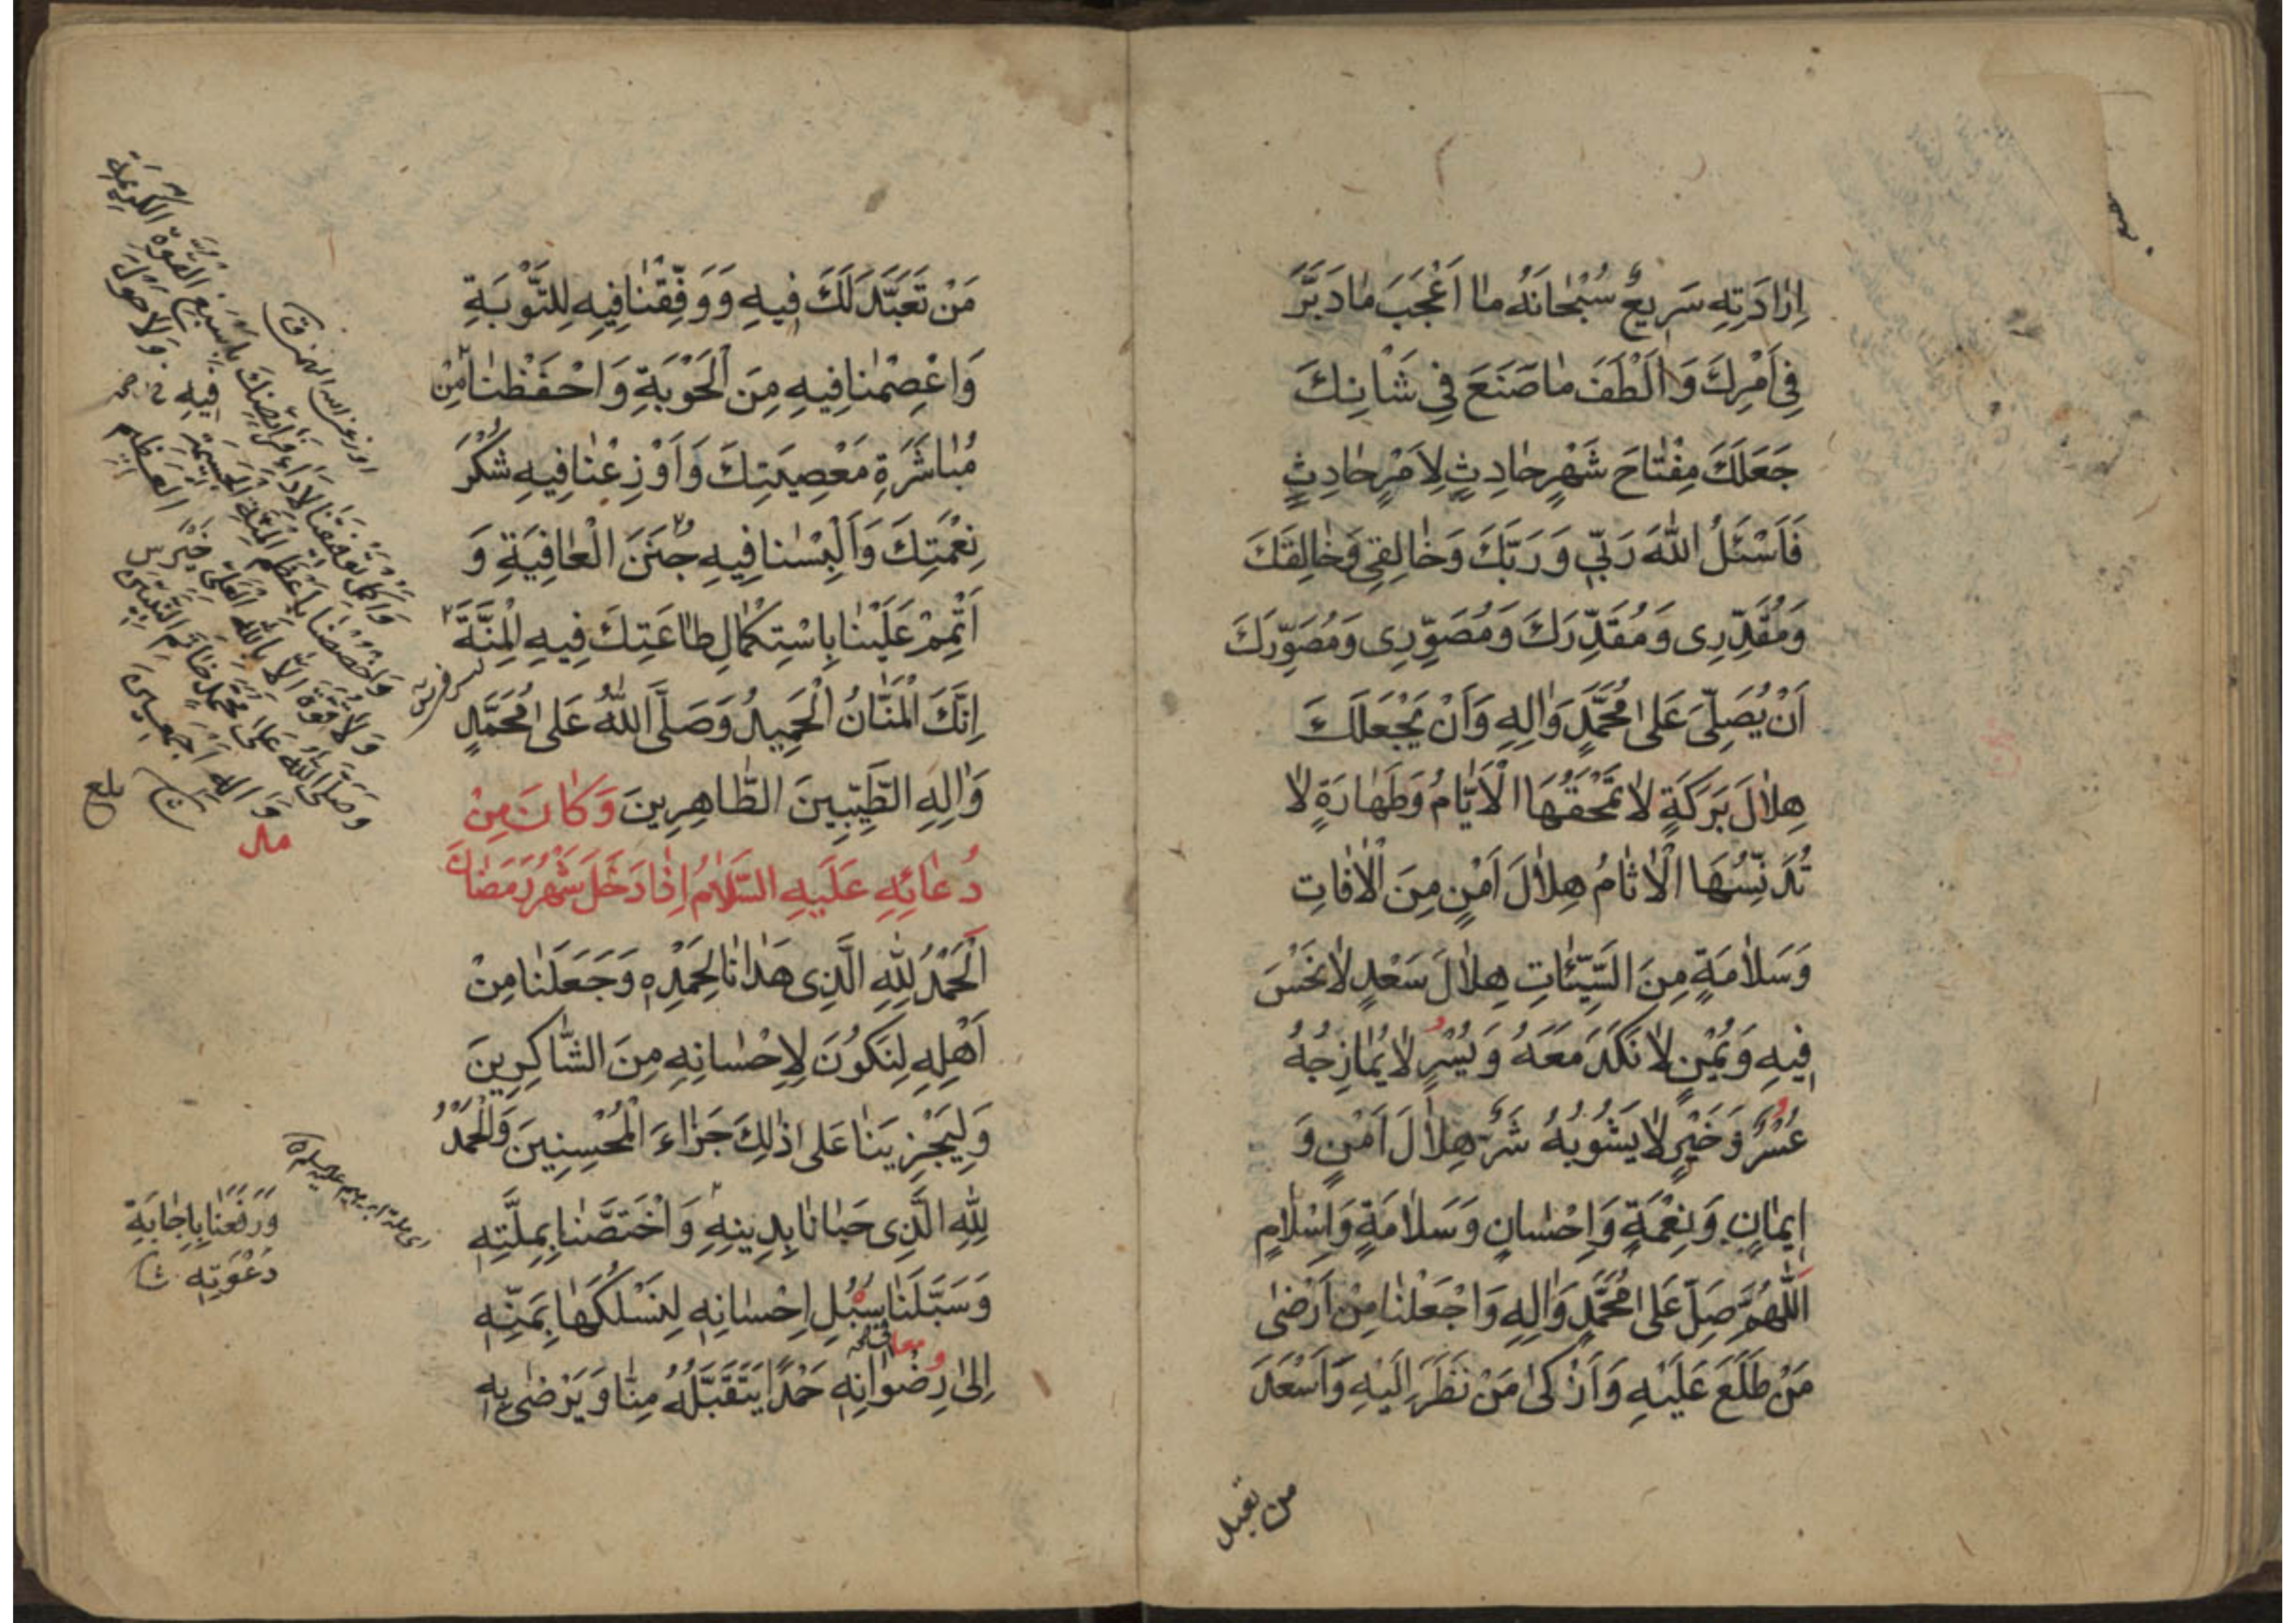 اِرٰادَتِهِ سَرِيعٌ سُبْحٰانَهُ مٰا اَعْجَبَ مٰا دَبَّرَ
فِي اَمْرِكَ وَاَلْطَفَ مٰا صَنَعَ فِي شَاْنِكَ
جَعَلَكَ مِفْتٰاحَ شَهْرٍ حٰادِثٍ لِاَمْرٍ حٰادِثٍ
فَاَسْئَلُ اللّٰهَ رَبِّي وَرَبَّكَ وَخٰالِقِي وَخٰالِقَكَ
وَمُقَدِّرِى وَمُقَدِّرَكَ وَمُصَوِّرِى وَمُصَوِّرَكَ
اَنْ يُصَلِّيَ عَلىٰ مُحَمَّدٍ وَاٰلِهِ وَاَنْ يَجْعَلَكَ
هِلٰالَ بَرَكَةٍ لٰا تَمْحَقُهَا الْاَيّٰامُ وَطَهٰارَةٍ لٰا
تُدَنِّسُهَا الْاٰثٰامُ هِلٰالَ اَمْنٍ مِنَ الْاٰفٰاتِ
وَسَلٰامَةٍ مِنَ السَّيِّئٰاتِ هِلٰالَ سَعْدٍ لٰا نَحْسَ
فِيهِ وَيُمْنٍ لٰا نَكَدَ مَعَهُ وَيُسْرٍ لٰا يُمٰازِجُهُ
عُسْرٌ وَخَيْرٍ لٰا يَشُوبُهُ شَرٌّ هِلٰالَ اَمْنٍ وَ
اِيمٰانٍ وَنِعْمَةٍ وَاِحْسٰانٍ وَسَلٰامَةٍ وَاِسْلٰامٍ
اَللّٰهُمَّ صَلِّ عَلىٰ مُحَمَّدٍ وَاٰلِهِ وَاجْعَلْنٰا مِنْ اَرْضىٰ
مَنْ طَلَعَ عَلَيْهِ وَاَزْكىٰ مَنْ نَظَرَ اِلَيْهِ وَاَسْعَدَ
من تعبد
مَنْ تَعَبَّدَ لَكَ فِيهِ وَوَفِّقْنٰا فِيهِ لِلتَّوْبَةِ
وَاعْصِمْنٰا فِيهِ مِنَ الْحَوْبَةِ وَاحْفَظْنٰا مِنْ
مُبٰاشَرَةِ مَعْصِيَتِكَ وَاَوْزِعْنٰا فِيهِ شُكْرَ
نِعْمَتِكَ وَاَلْبِسْنٰا فِيهِ جُنَنَ الْعٰافِيَةِ وَ
اَتْمِمْ عَلَيْنٰا بِاسْتِكْمٰالِ طٰاعَتِكَ فِيهِ الْمِنَّةَ
اِنَّكَ الْمَنّٰانُ الْحَمِيدُ وَصَلَّى اللّٰهُ عَلىٰ مُحَمَّدٍ
وَاٰلِهِ الطَّيِّبِينَ الطّٰاهِرِينَ وَكٰانَ مِنْ
دُعٰائِهِ عَلَيهِ السَّلٰامُ اِذٰا دَخَلَ شَهْرُ رَمَضٰانَ
اَلْحَمْدُ لِلّٰهِ الَّذِى هَدٰانٰا لِحَمْدِهِ وَجَعَلَنٰا مِنْ
اَهْلِهِ لِنَكُونَ لِاِحْسٰانِهِ مِنَ الشّٰاكِرِينَ
وَلِيَجْزِيَنٰا عَلىٰ ذٰلِكَ جَزٰاءَ الْمُحْسِنِينَ وَالْحَمْدُ
لِلّٰهِ الَّذِى حَبٰانٰا بِدِينِهِ وَاخْتَصَّنٰا بِمِلَّتِهِ
وَسَبَّلَنٰا سُبُلِ اِحْسٰانِهِ لِنَسْلُكَهٰا بِمَنِّهِ
معا
اِلىٰ رِضْوٰانِهِ حَمْدًا يَتَقَبَّلُهُ مِنّٰا وَيَرْضىٰ بِهِ
وَاَكْمِلْ تَوْفِيقَنَا لِاَدَاءِ فَرَائِضِكَ بِاَسْبَغِ الْقُوَّةِ الْكَرِيمَةِ
وَاخْصُصْنَا بِاَعْظَمِ الْمِنَّةِ الْجَسِيمَةِ فِيهِ وَلَا حَوْلَ
وَلَا قُوَّةَ اِلَّا بِاللّٰهِ الْعَلِيِّ الْعَظِيمِ
وَصَلَّى اللّٰهُ عَلَى مُحَمَّدٍ خَاتَمِ النَّبِيِّينَ
وَاٰلِهِ اَجْمَعِينَ
بلغ
وَرَفَعَنٰا بِاِجٰابَةِ
دَعْوَتِهِ